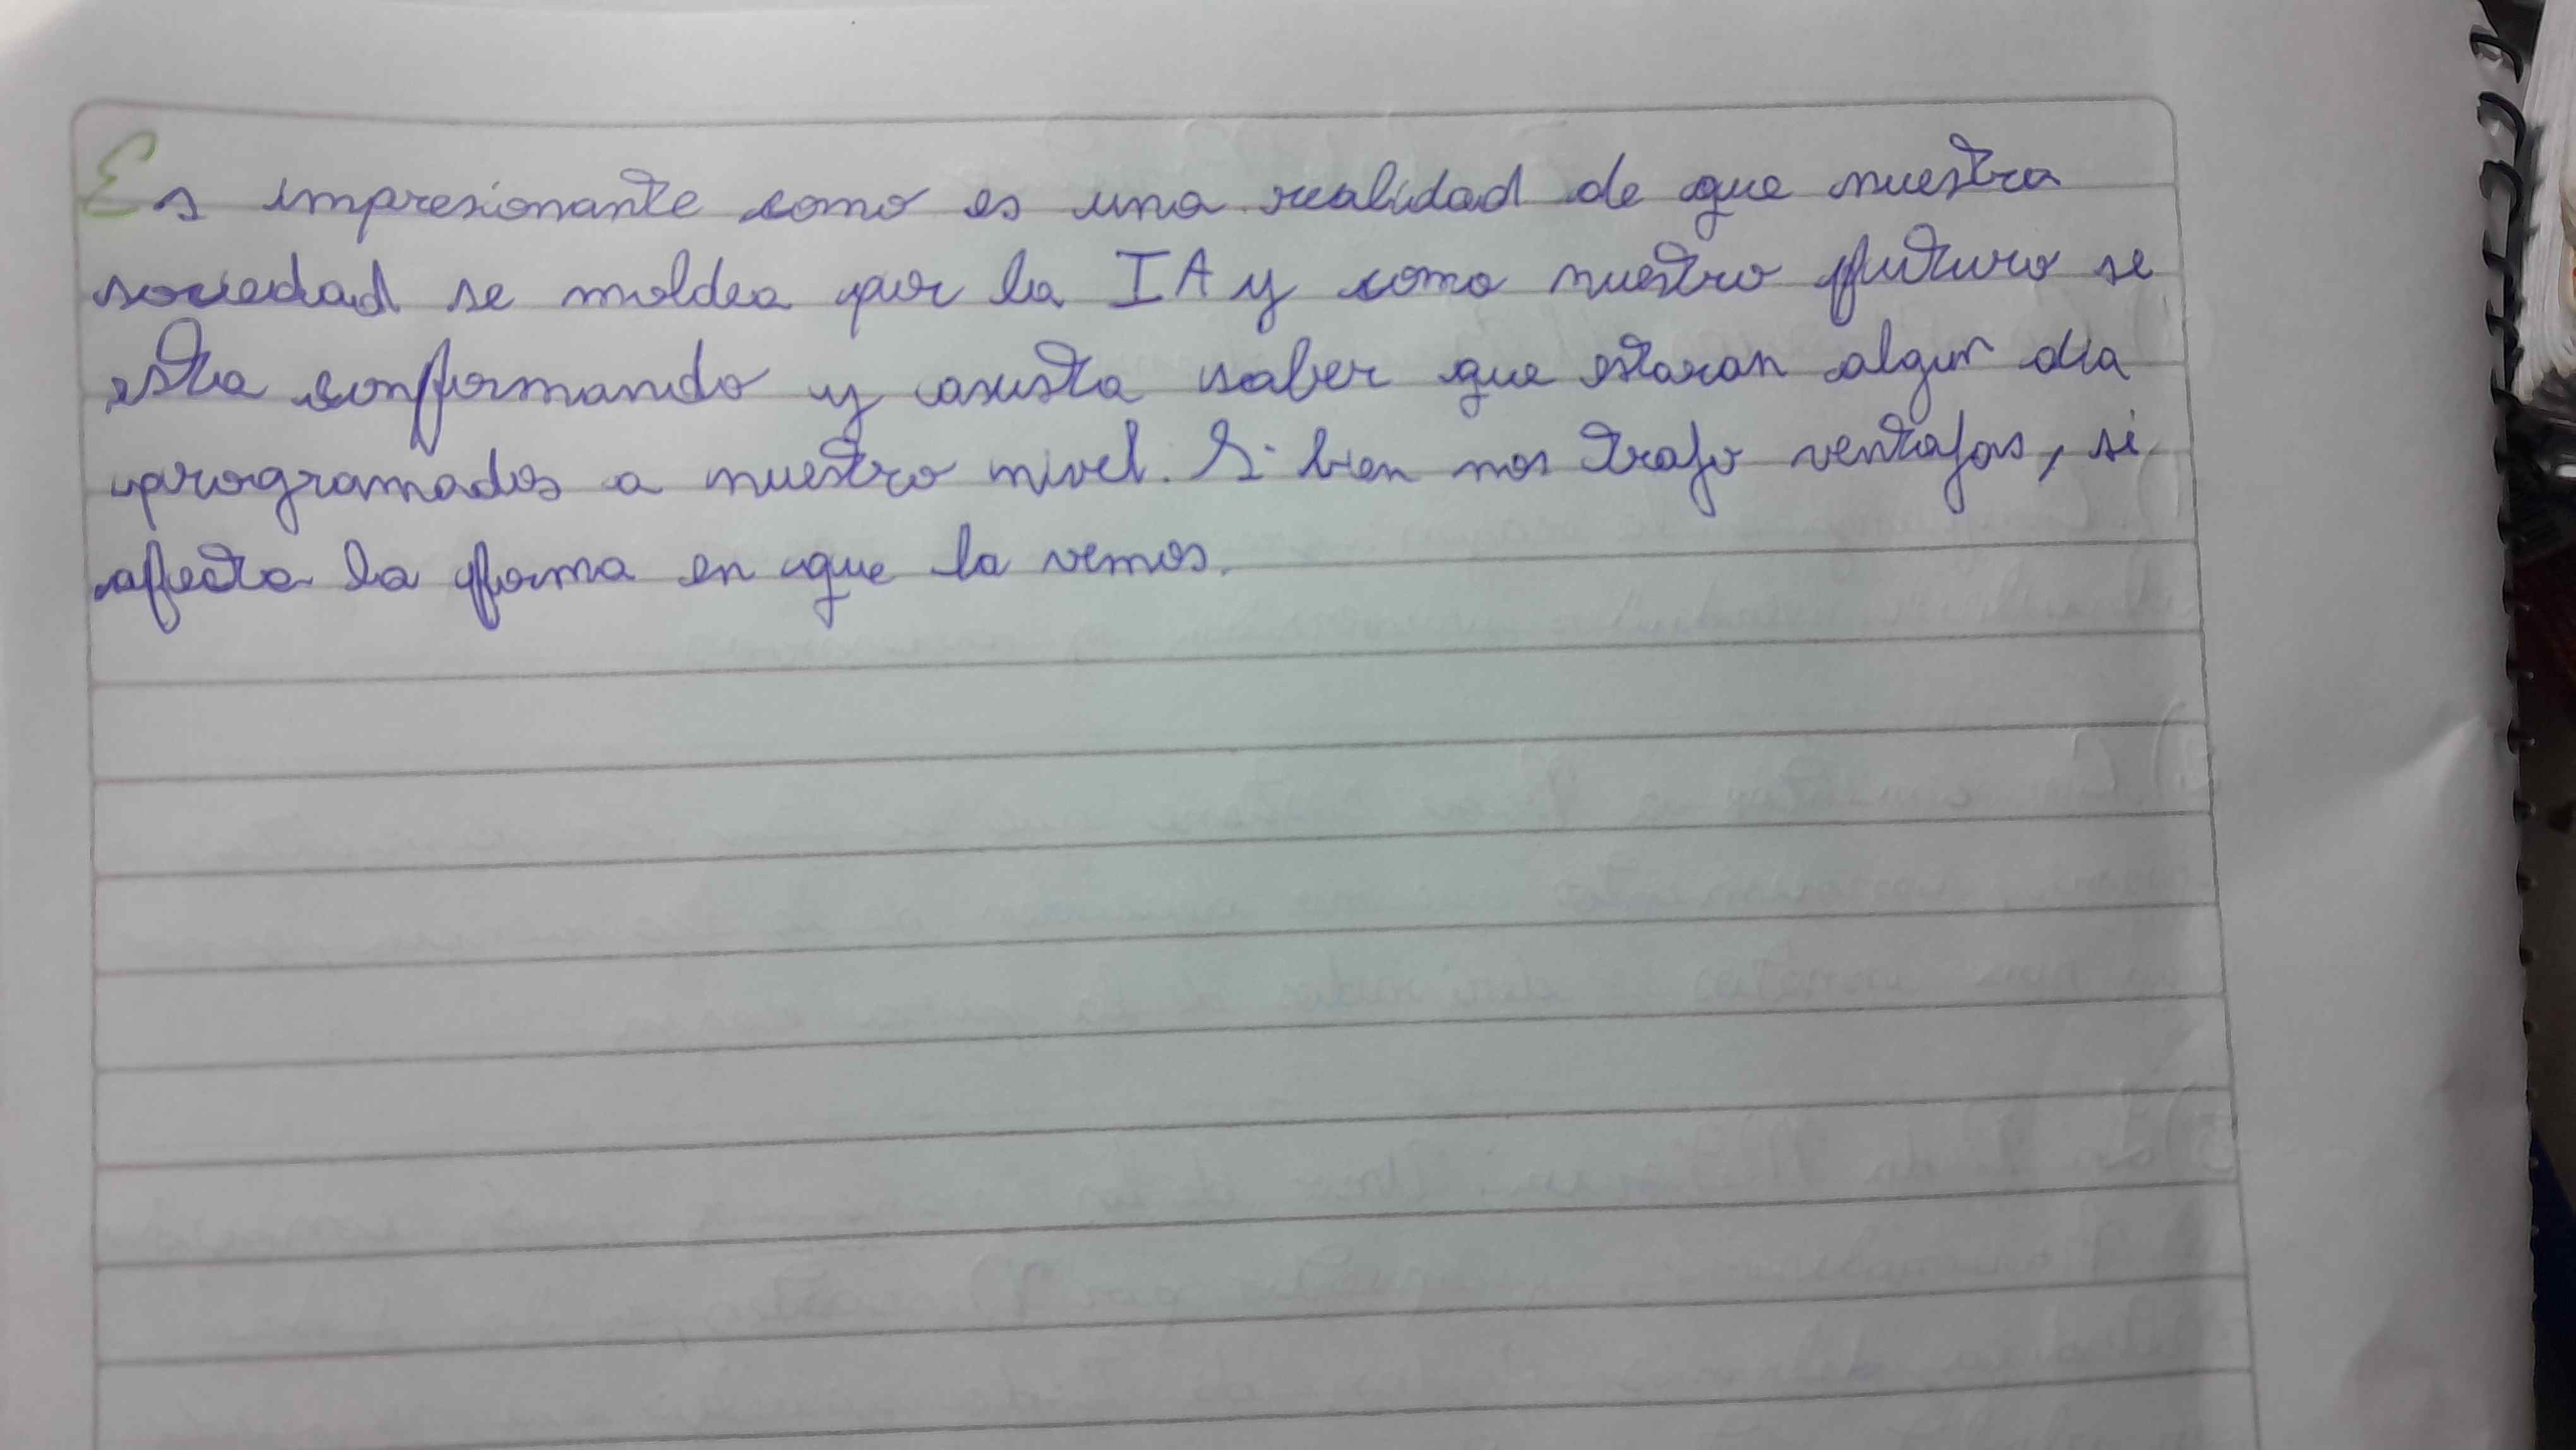 Es impresionante como es una realidad de que nuestra
sociedad se moldea por la IA y como nuestro futuro se
esta conformando y asusta saber que estaran algun dia
programados a nuestro nivel. Si bien nos trajo ventajas, si
afecta la forma en que la vemos.